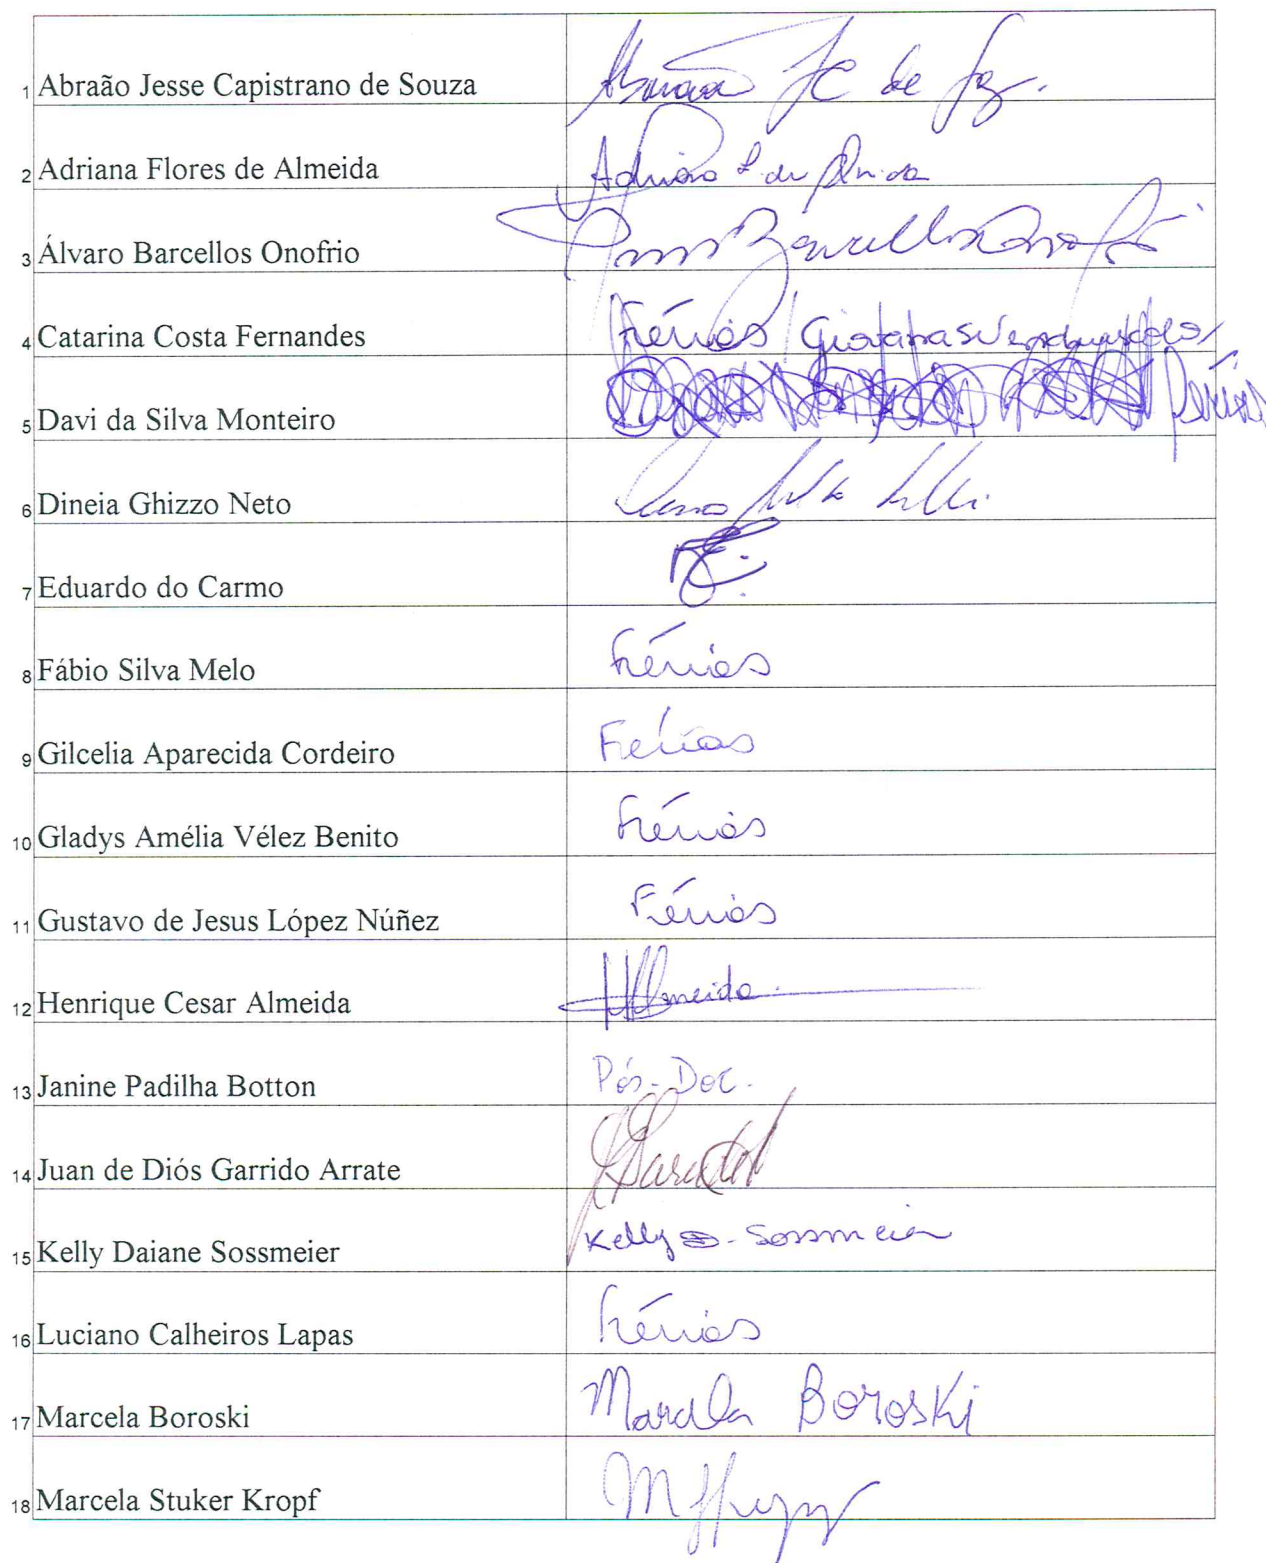 1 Abraão Jesse Capistrano de Souza JC de
2 Adriana Flores de Almeida Adriana F. de Almeida
3 Álvaro Barcellos Onofrio Barcellos Onofrio
4 Catarina Costa Fernandes Férias / Giovana
5 Davi da Silva Monteiro Férias
6 Dineia Ghizzo Neto
7 Eduardo do Carmo
8 Fábio Silva Melo Férias
9 Gilcelia Aparecida Cordeiro Férias
10 Gladys Amélia Vélez Benito Férias
11 Gustavo de Jesus López Núñez Férias
12 Henrique Cesar Almeida HAlmeida
13 Janine Padilha Botton Pós-Doc.
14 Juan de Diós Garrido Arrate
15 Kelly Daiane Sossmeier Kelly D. Sossmeier
16 Luciano Calheiros Lapas Férias
17 Marcela Boroski Marcela Boroski
18 Marcela Stuker Kropf